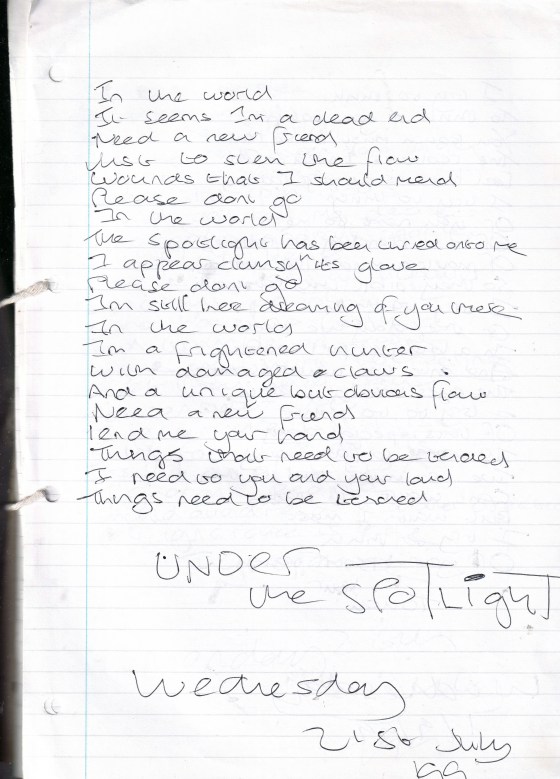 In the world
It seems Im a dead end
Need a new friend
Just to the flow
Wounds that I should mend
Please dont go
In the world
The spotlight has been onto me
I appear clumsy its glare
Please dont go
Im still here dreaming of you
In the world
Im a frightened hunter
With damaged claws
And a unique but obvious flaw
Need a new friend
lend me your hand
Things that need to be tended
I need to you and your land
Things need to be tended
UNDER
the SPOTLIGHT
Wednesday
21st July